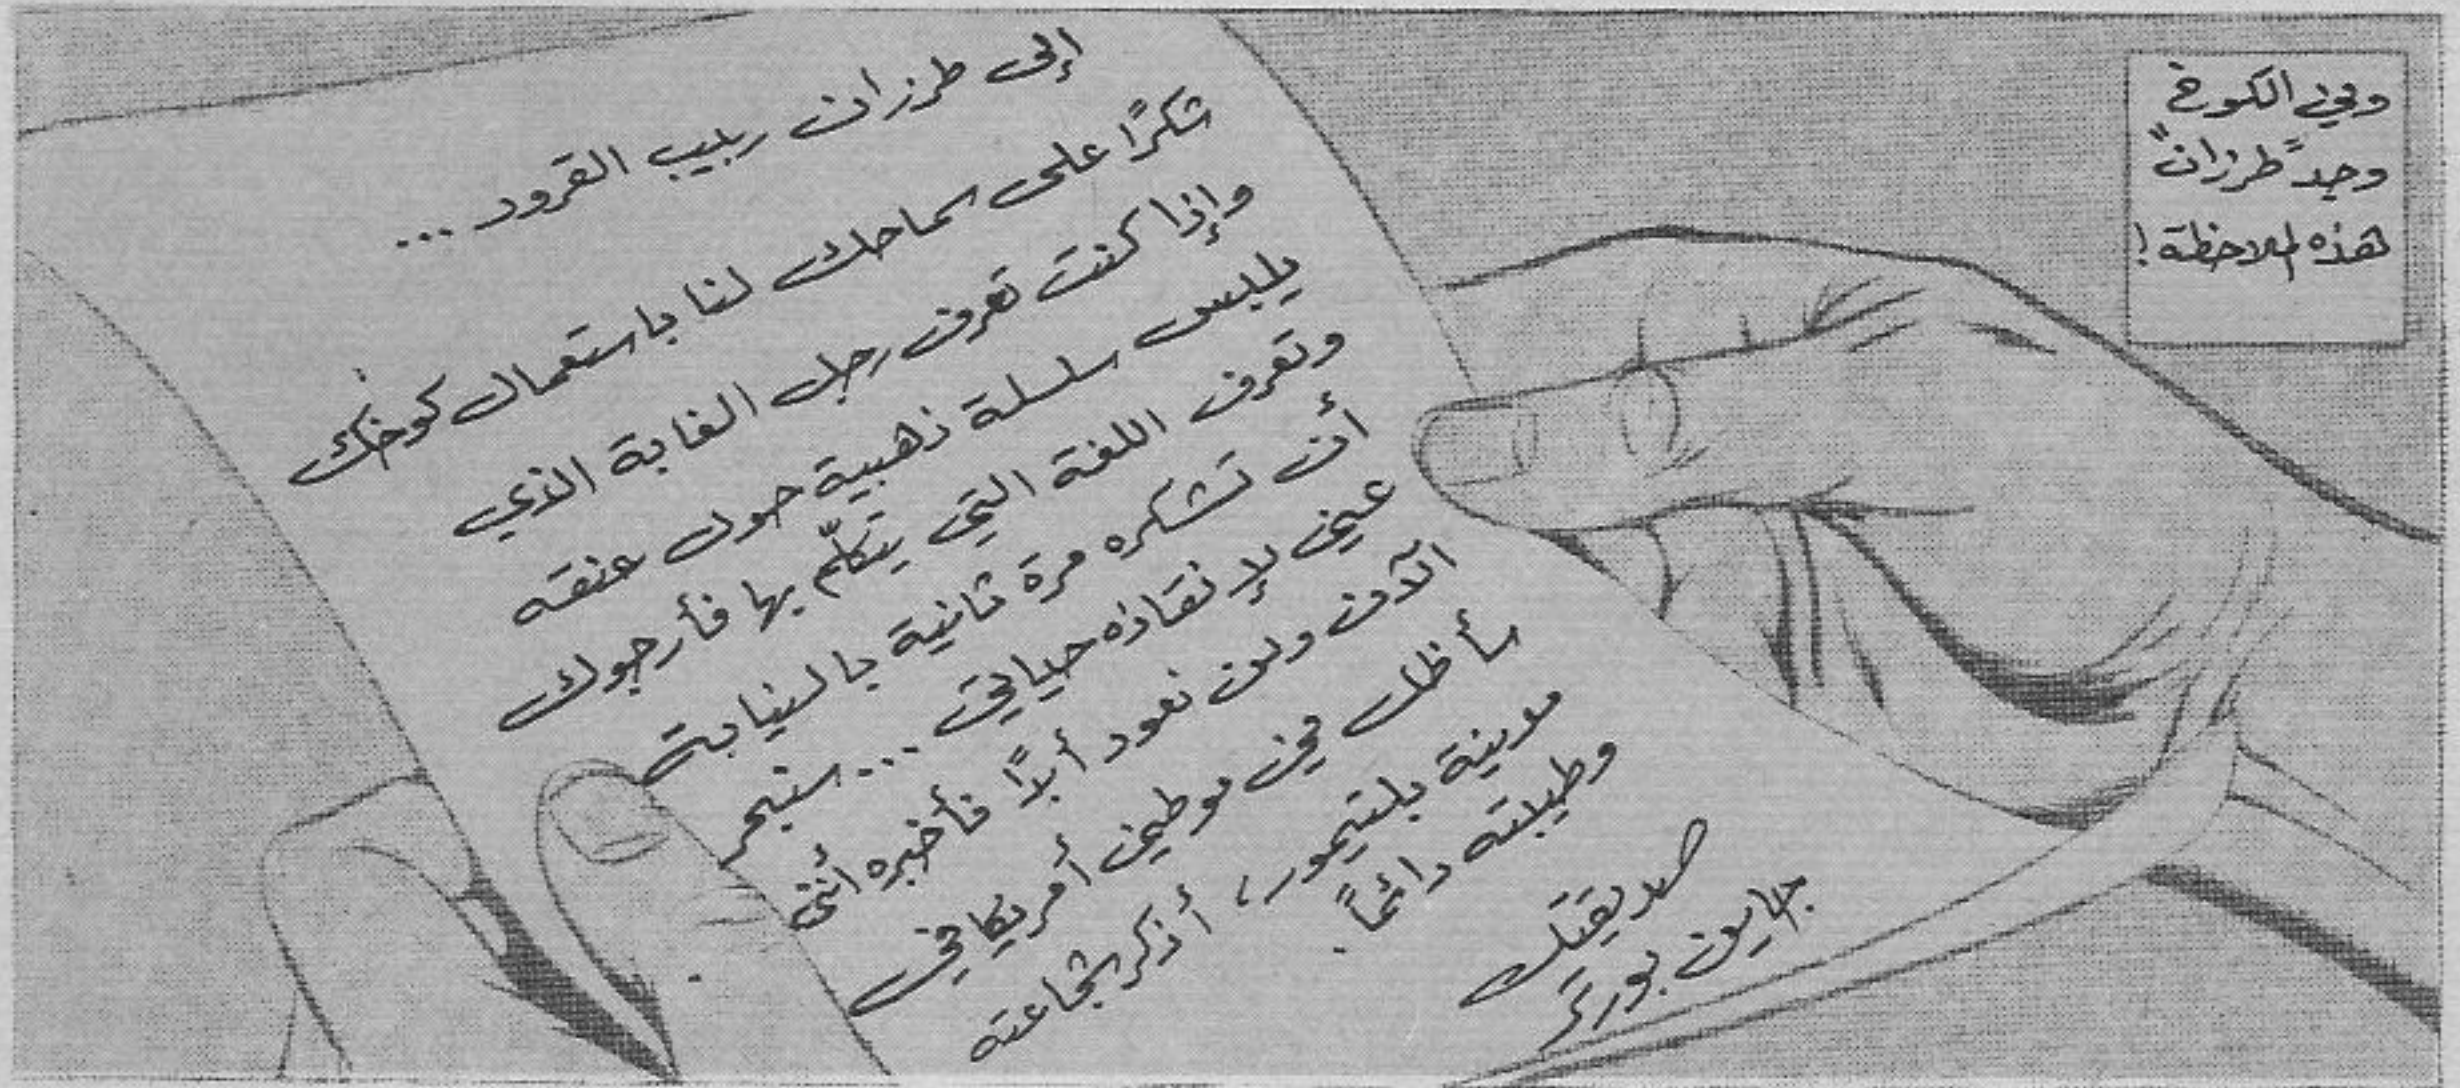 وفي الكوخ
وجد "طرزان"
هذه الملاحظة!
إلى طرزان ربيب القرود ...
شكرًا على سماحك لنا باستعمال كوخك
وإذا كنت تعرف رجل الغابة الذي
يلبس سلسلة ذهبية حول عنقه
وتعرف اللغة التي يتكلّم بها فأرجوك
أن تشكره مرة ثانية بالنيابة
عني لإنقاذه حياتي ... سنبحر
الآن ولن نعود أبدًا فأخبره أنني
سأظل في موطني أمريكا في
مدينة بلتيمور، أذكر شجاعته
وطيبته دائمًا.
صديقتك
جاين بورتر